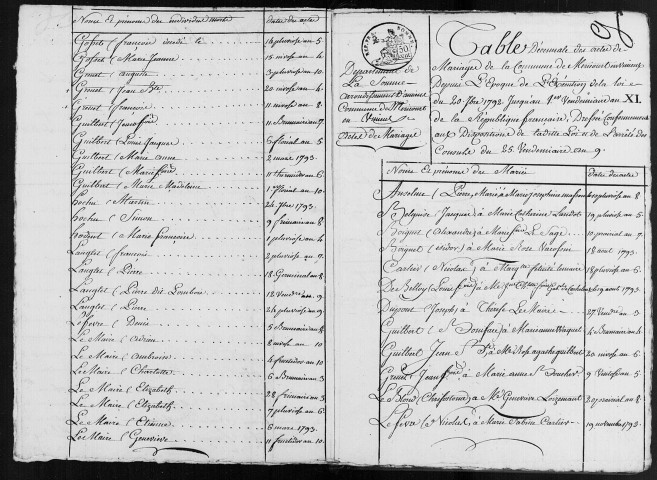 Noms et prénoms du individu morts Date des actes
Gofest (françois 14 pluviose an 5
Gofest (Marie Jeanne 15 nivose an 4
Grenet (auguste 3 pluviose an 10
Grenet (Jean Bte 20 nivose an 4
Grenet (francoise 11 nivose an 8
Guilbert (Joseph 11 Brumaire an 7
Guilbert (Louis Jacques 5 floreal an 5
Guilbert (Marie anne 2 mars 1793
Guilbert (Marie 11 thermidor an 6
Guilbert (Marie Madeleine 1er floreal an 10
hoche (Martin 24 7bre 1793
hoche (Simon 9 frimaire an 8
hodent (Marie francoise 1 pluviose an 4
Langlet (francois 2 pluviose an 7
Langlet (Pierre 18 Germinal an 8
Langlet (Pierre dit 12 Vendre an 9
Langlet (Pierre 24 pluviose an 9
Lefevre (Denis 5 Brumaire an 8
Le Maire (Adrien 8 nivose an 10
Le Maire (ambroise 4 fructidor an 10
Le Maire (Charlotte 6 Brumaire an 3
Le Maire (Elizabeth 28 frimaire an 5
Le Maire (Elizabeth 7 pluviose an 6
Le Maire (Etienne 6 mars 1793
Le Maire (Genevieve 11 fructidor an 10
Département de
La Somme
arrondissement D'amiens
Commune de Méricourt
en Vimeux
actes de Mariages
Table Décennale des actes de
Mariages de la Commune de Méricourt en vimeux
Depuis L'Epoque de L'Exécution de la loi
du 20 7bre 1792 Jusqu'au 1er Vendemiaire an XI.
de la République française; Dressée Conformément
aux Dispositions de ladite Loi et de l'arrêté des
Consuls du 25 Vendemiaire an 9.
Noms et prénoms des Mariés Date des actes
Anselme (Pierre, Marié à Marie Josephine pluviose an 8
Belquise (Jacques) à Marie Catherine 19 pluviose an 5
Boignet (Alexandre) à Marie Le Sage 10 prairial an 7
Boignet (isidor) à Marie Rose 18 aout 1793
Cartier (Nicolas) à felicité 18 pluviose an 6
De Belloy (Louis 19 aout 1793
Dupont (Joseph) à Therese Le Maire 27 Vendre an 3
Guilbert (St 4 Brumaire an 4
Guilbert Jean Bte à Rose agathe guilbert 20 nivose an 6
Grenet à Marie anne 9 Ventose an 5
Le Blond à Genevieve 20 prairial an 8
Le fevre (Nicolas) à Marie Sabine Cartier 19 novembre 1792